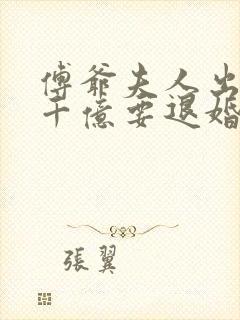 傅爺夫人出
千億要退婚
張翼